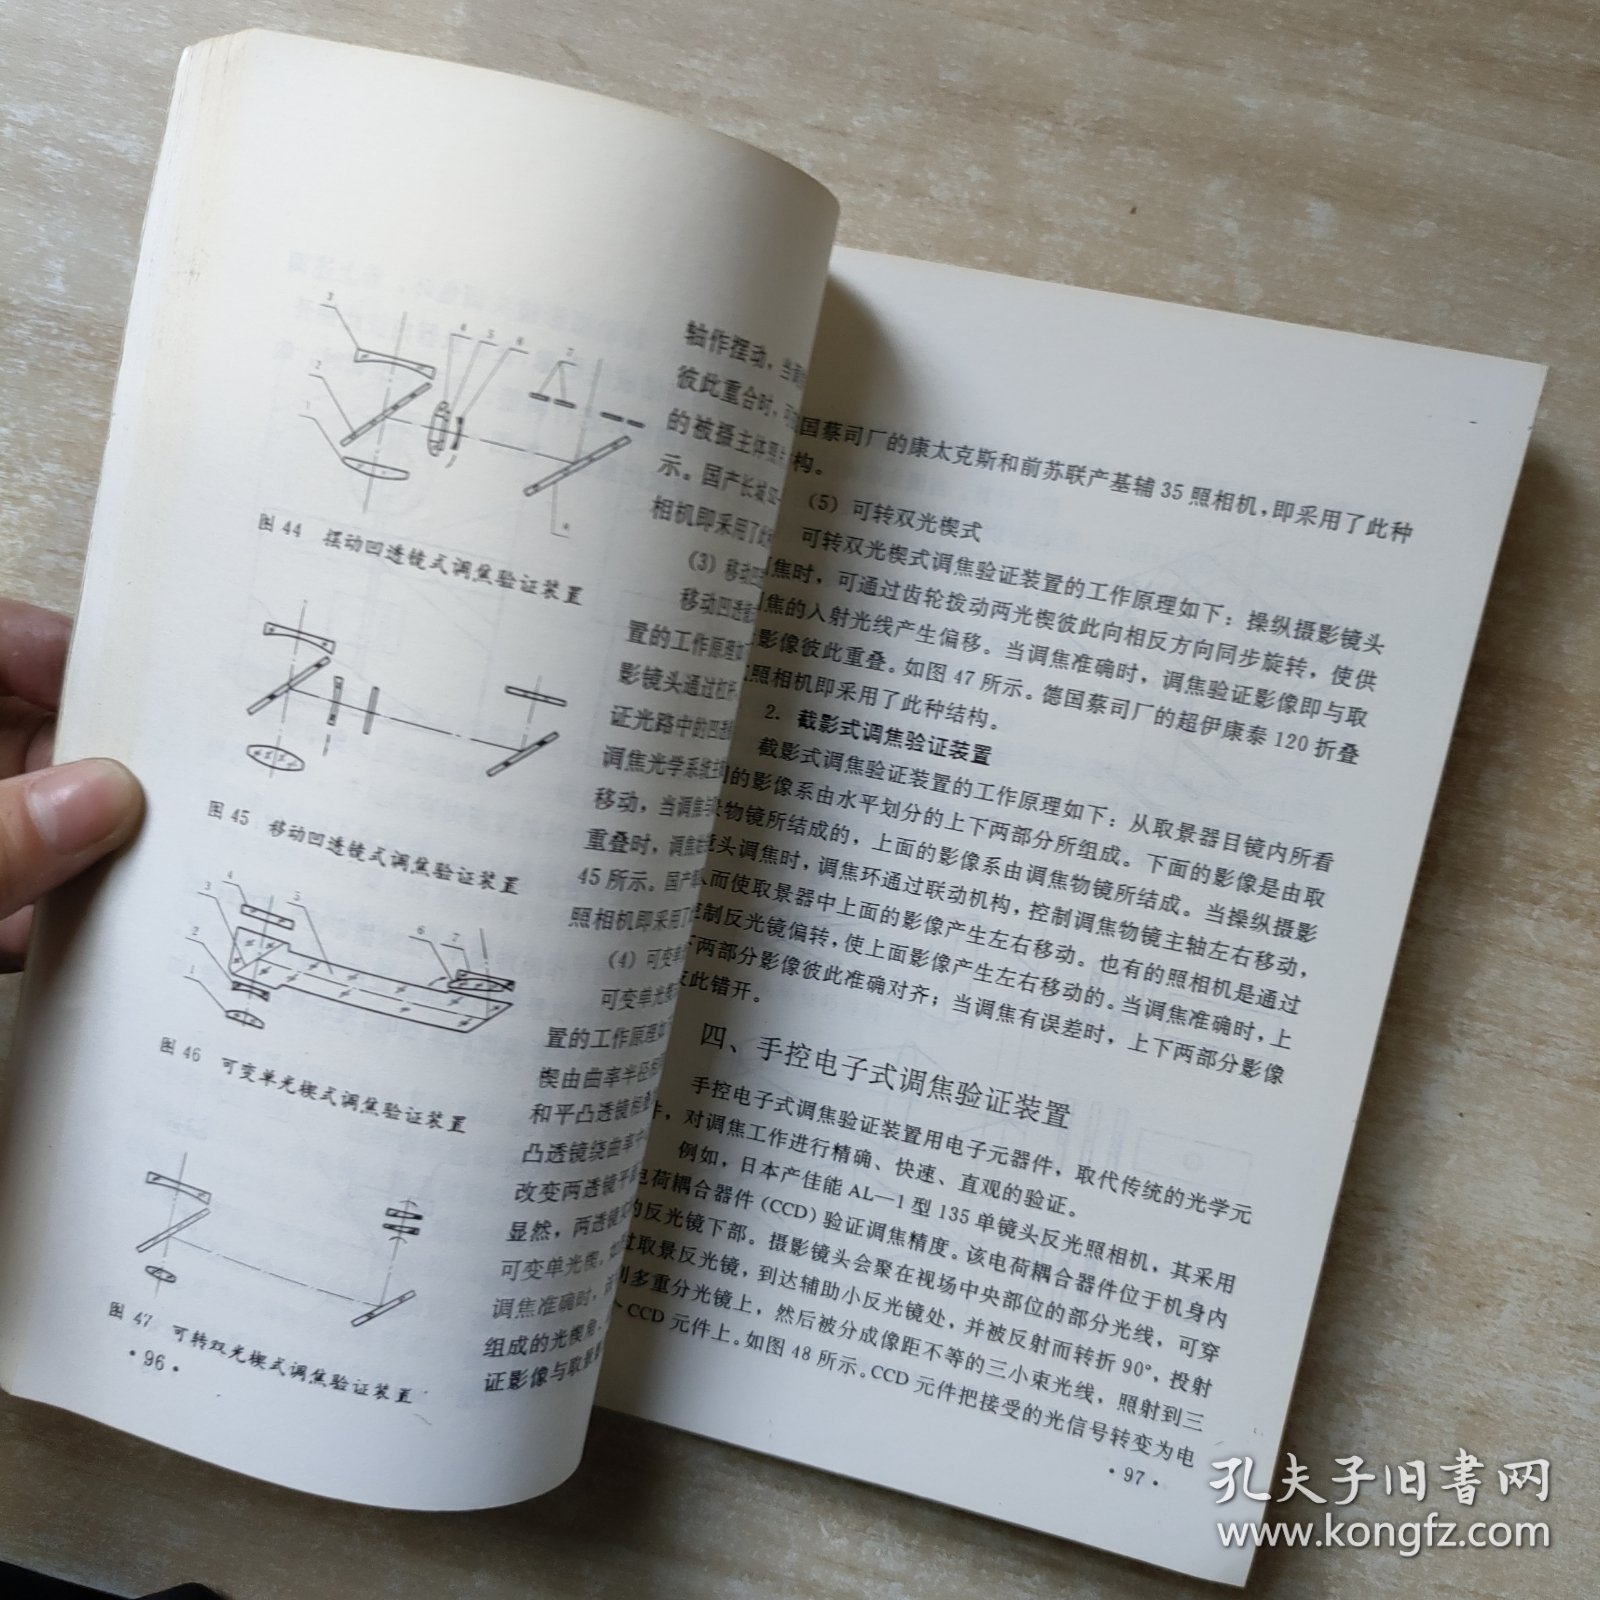 3
4 5 6
7
2
1
4
图 44 摆动凹透镜式调焦验证装置
图 45 移动凹透镜式调焦验证装置
3 4 5
6 7
2
1
图 46 可变单光楔式调焦验证装置
图 47 可转双光楔式调焦验证装置
·96·
轴作摆动，当
彼此重合时，可
的被摄主体照
示。国产长城
相机即采用了此
（3）移动
移动凹透镜
置的工作原理如
影镜头通过杠杆
证光路中的凹透
调焦光学系统主
移动，当调焦
重叠时，调焦
45 所示。国产
照相机即采用了
（4）可变单
可变单光楔
置的工作原理如
楔由曲率半径相
和平凸透镜相叠
凸透镜绕曲率中
改变两透镜平
显然，两透镜
可变单光楔，
调焦准确时，
组成的光楔角
证影像与取景
国蔡司厂的康太克斯和前苏联产基辅 35 照相机，即采用了此种
构。
（5）可转双光楔式
可转双光楔式调焦验证装置的工作原理如下：操纵摄影镜头
焦时，可通过齿轮拨动两光楔彼此向相反方向同步旋转，使供
焦的入射光线产生偏移。当调焦准确时，调焦验证影像即与取
影像彼此重叠。如图 47 所示。德国蔡司厂的超伊康泰 120 折叠
照相机即采用了此种结构。
2. 截影式调焦验证装置
截影式调焦验证装置的工作原理如下：从取景器目镜内所看
的影像系由水平划分的上下两部分所组成。下面的影像是由取
物镜所结成的，上面的影像系由调焦物镜所结成。当操纵摄影
头调焦时，调焦环通过联动机构，控制调焦物镜主轴左右移动，
而使取景器中上面的影像产生左右移动。也有的照相机是通过
制反光镜偏转，使上面影像产生左右移动的。当调焦准确时，上
下两部分影像彼此准确对齐；当调焦有误差时，上下两部分影像
此错开。
四、手控电子式调焦验证装置
手控电子式调焦验证装置用电子元器件，取代传统的光学元
件，对调焦工作进行精确、快速、直观的验证。
例如，日本产佳能 AL—1 型 135 单镜头反光照相机，其采用
电荷耦合器件（CCD）验证调焦精度。该电荷耦合器件位于机身内
的反光镜下部。摄影镜头会聚在视场中央部位的部分光线，可穿
过取景反光镜，到达辅助小反光镜处，并被反射而转折 90°，投射
到多重分光镜上，然后被分成像距不等的三小束光线，照射到三
个 CCD 元件上。如图 48 所示。CCD 元件把接受的光信号转变为电
·97·
孔夫子旧书网
www.kongfz.com